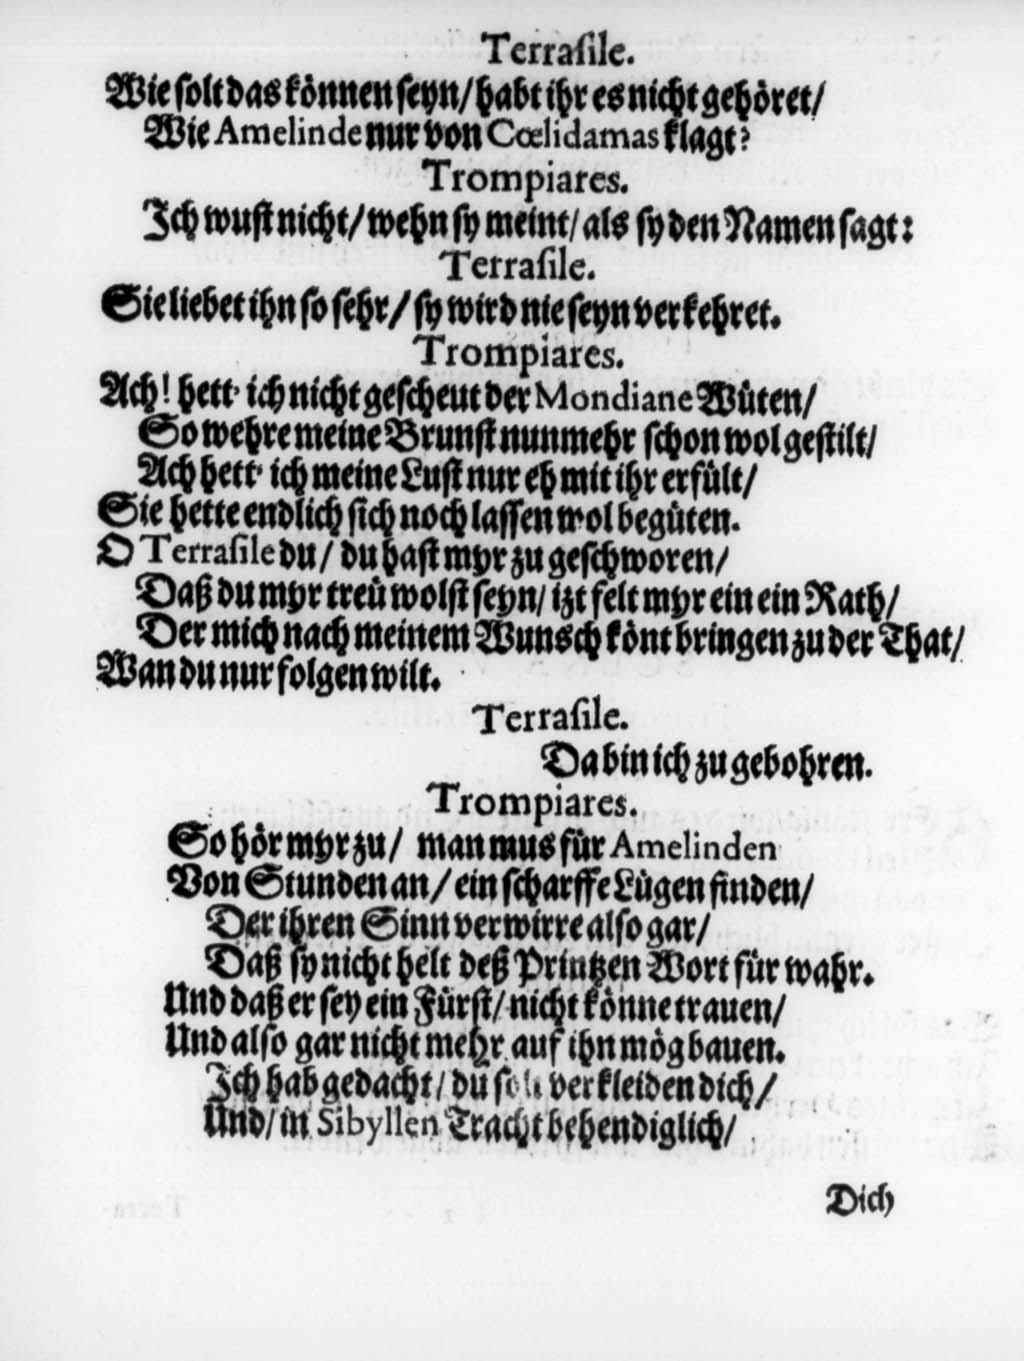 Terraſile.
Wie ſolt das können ſeyn/ habt ihr es nicht gehöret/
Wie Amelinde nur von Cœlidamas klagt?
Trompiares.
Ich wuſt nicht/ wehn ſy meint/ als ſy den Namen ſagt:
Terraſile.
Sie liebet ihn ſo ſehr/ ſy wird nie ſeyn verkehret.
Trompiares.
Ach! hett' ich nicht geſcheut der Mondiane Wüten/
So wehre meine Brunſt nunmehr ſchon wol geſtilt/
Ach hett' ich meine Luſt nur eh mit ihr erfült/
Sie hette endlich ſich noch laſſen wol begüten.
O Terraſile du/ du haſt myr zu geſchworen/
Daß du myr treü wolſt ſeyn/ izt felt myr ein ein Rath/
Der mich nach meinem Wunsch könt bringen zu der That/
Wan du nur folgen wilt.
Terraſile.
Da bin ich zu gebohren.
Trompiares.
So hör myr zu/ man mus für Amelinden
Von Stunden an/ ein ſcharffe Lügen finden/
Der ihren Sinn verwirre alſo gar/
Daß ſy nicht helt deß Printzen Wort für wahr.
Und daß er ſey ein Fürſt/ nicht könne trauen/
Und alſo gar nicht mehr auf ihn mög bauen.
Ich hab gedacht/ du ſolt verkleiden dich/
Und/ in Sibyllen Tracht behendiglich/
Dich